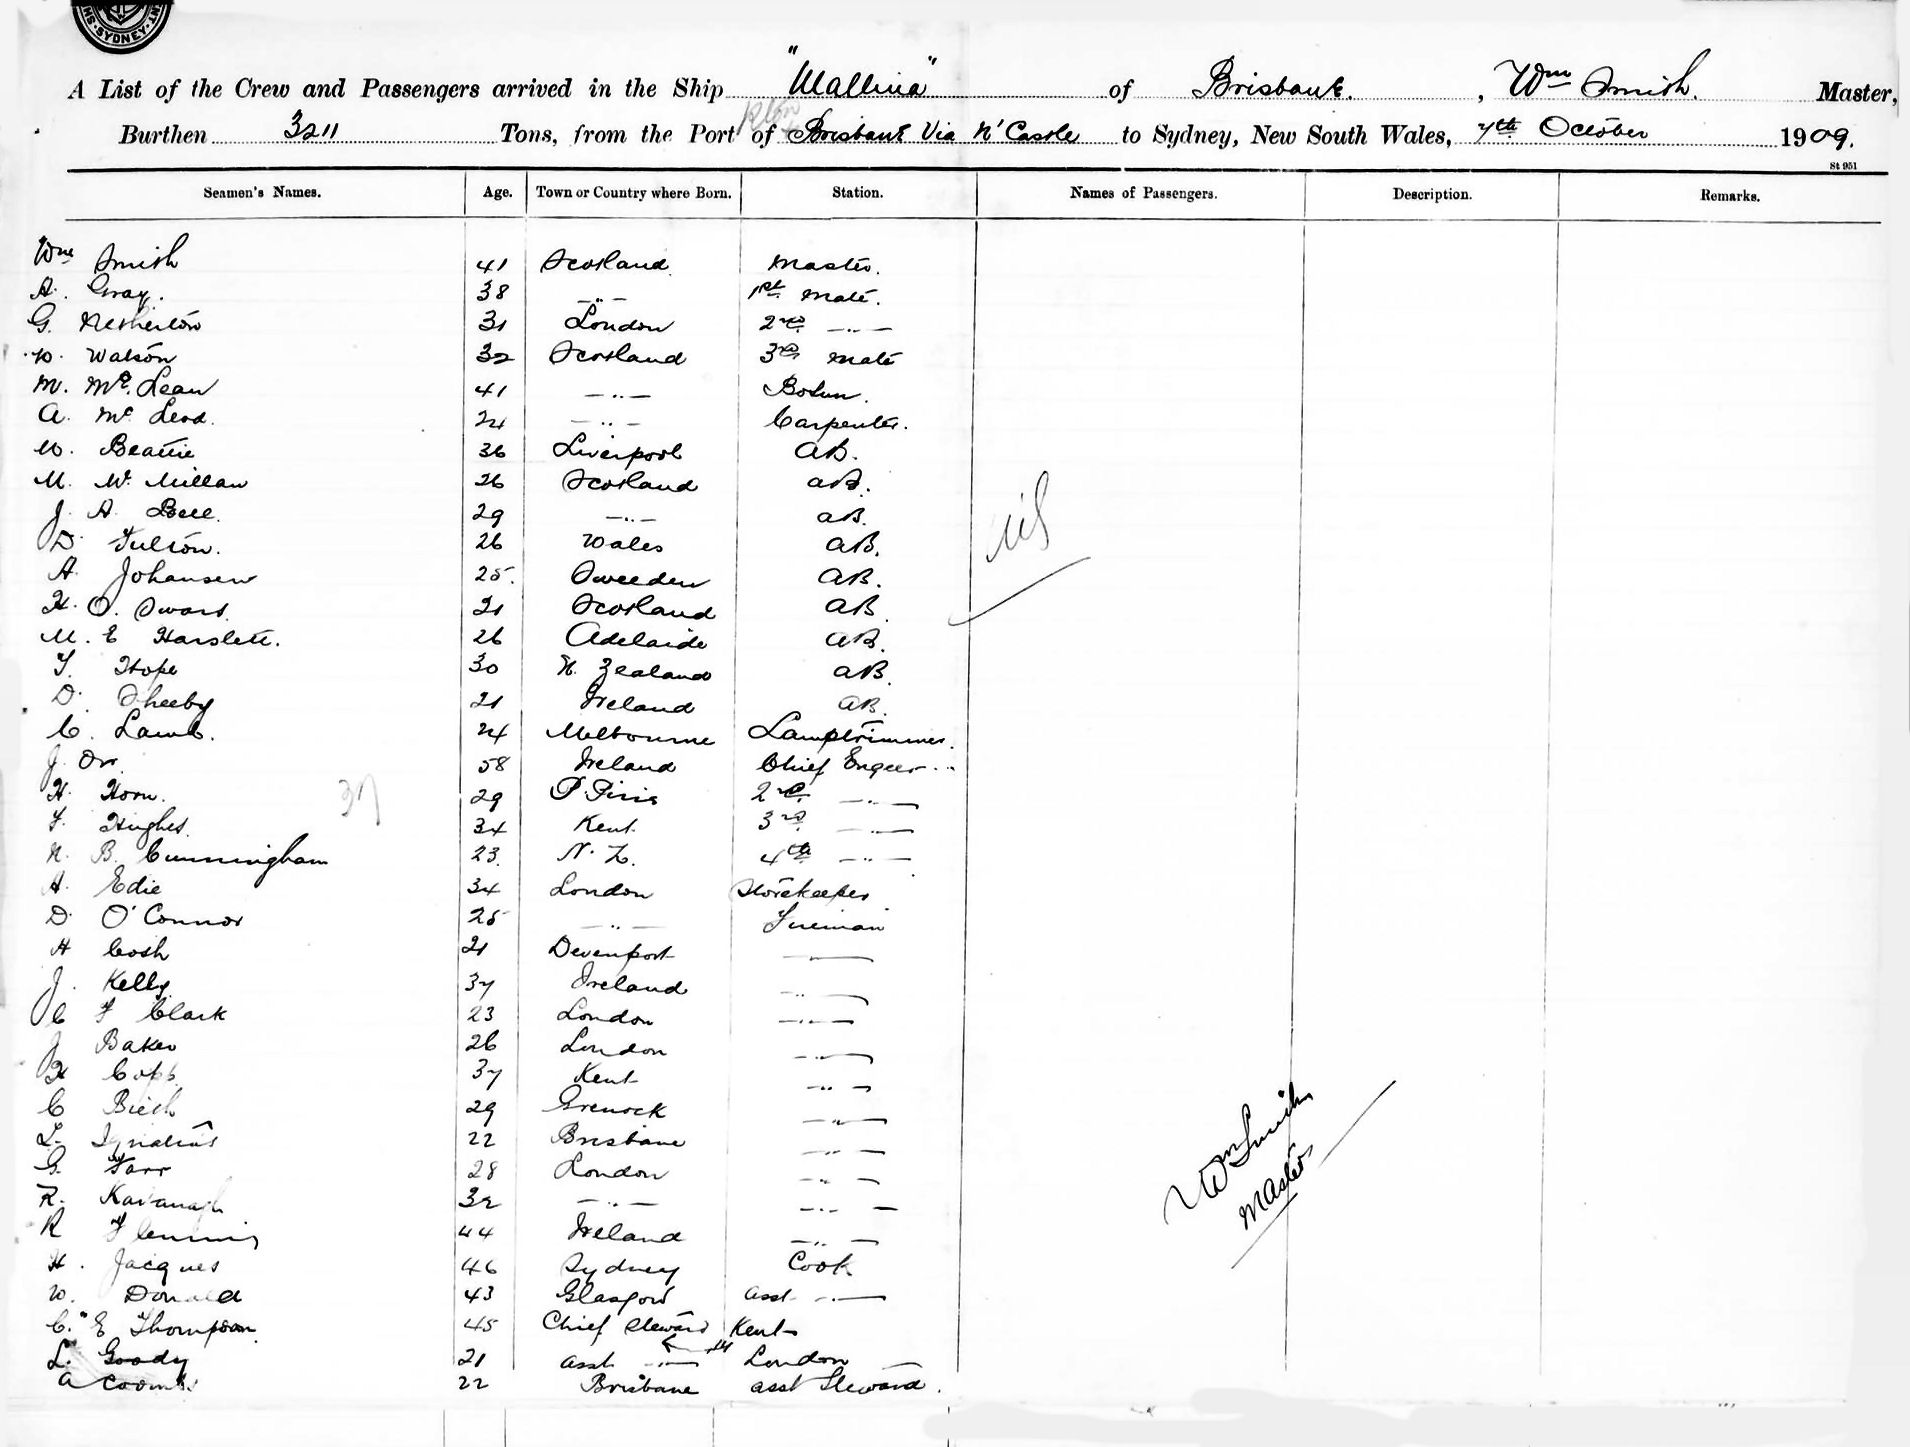 SYDNEY
A List of the Crew and Passengers arrived in the Ship "Wallina" of Brisbane. , Wm Smith. Master,
Burthen 3211 Tons, from the Port of Brisbane Via N'Castle to Sydney, New South Wales, 7th October 1909.
St 951
Seamen's Names. Age. Town or Country where Born. Station. Names of Passengers. Description. Remarks.
Wm Smith 41 Scotland Master.
A. Gray. 38 —..— 1st Mate.
G. Netherton 31 London 2nd —..—
W. Watson 32 Scotland 3rd Mate
M. McLean 41 —..— Bosun.
A. McLeod. 24 —..— Carpenter.
W. Beattie 36 Liverpool AB.
M. Mc Millan 26 Scotland AB.
J. A. Bell. 29 —..— AB.
D. Fulton. 26 Wales AB.
A. Johansen 25. Sweeden AB.
H. O. Swars. 21 Scotland AB
M. E Harslett. 26 Adelaide AB.
T. Hope 30 N. Zealand AB.
D. Sheeby 21 Ireland AB.
C. Lamb. 24 Melbourne Lamptrimmer.
J. Orr. 58 Ireland Chief Engeer
H. Horn. 29 P. Pirie 2nd —..—
37
F. Hughes. 34 Kent. 3rd —..—
N. B. Cunningham 23. N.Z. 4th —..—
A. Edie 34 London Storekeeper
D. O'Connor 25 —..— Fireman
H Cosh 21 Devenport ———
J. Kelly. 37 Ireland —..—
C F Clark 23 London —..—
J Baker 26 London —..—
H Copp. 37 Kent —..—
C Birch 29 Grenock —..—
L. Ignatius 22 Brisbane —..—
G. Farr 28 London —..—
R. Kavanagh 32 —..— —..—
R Flemming 44 Ireland —..—
H. Jacques 46 Sydney Cook
W. Donald 43 Glasgow Asst —..—
C. E Thompson 45 Chief Steward Kent
L. Goody 21 Asst —..— London
A Coombs 22 Brisbane Asst Steward.
Nil
Wm Smith
Master